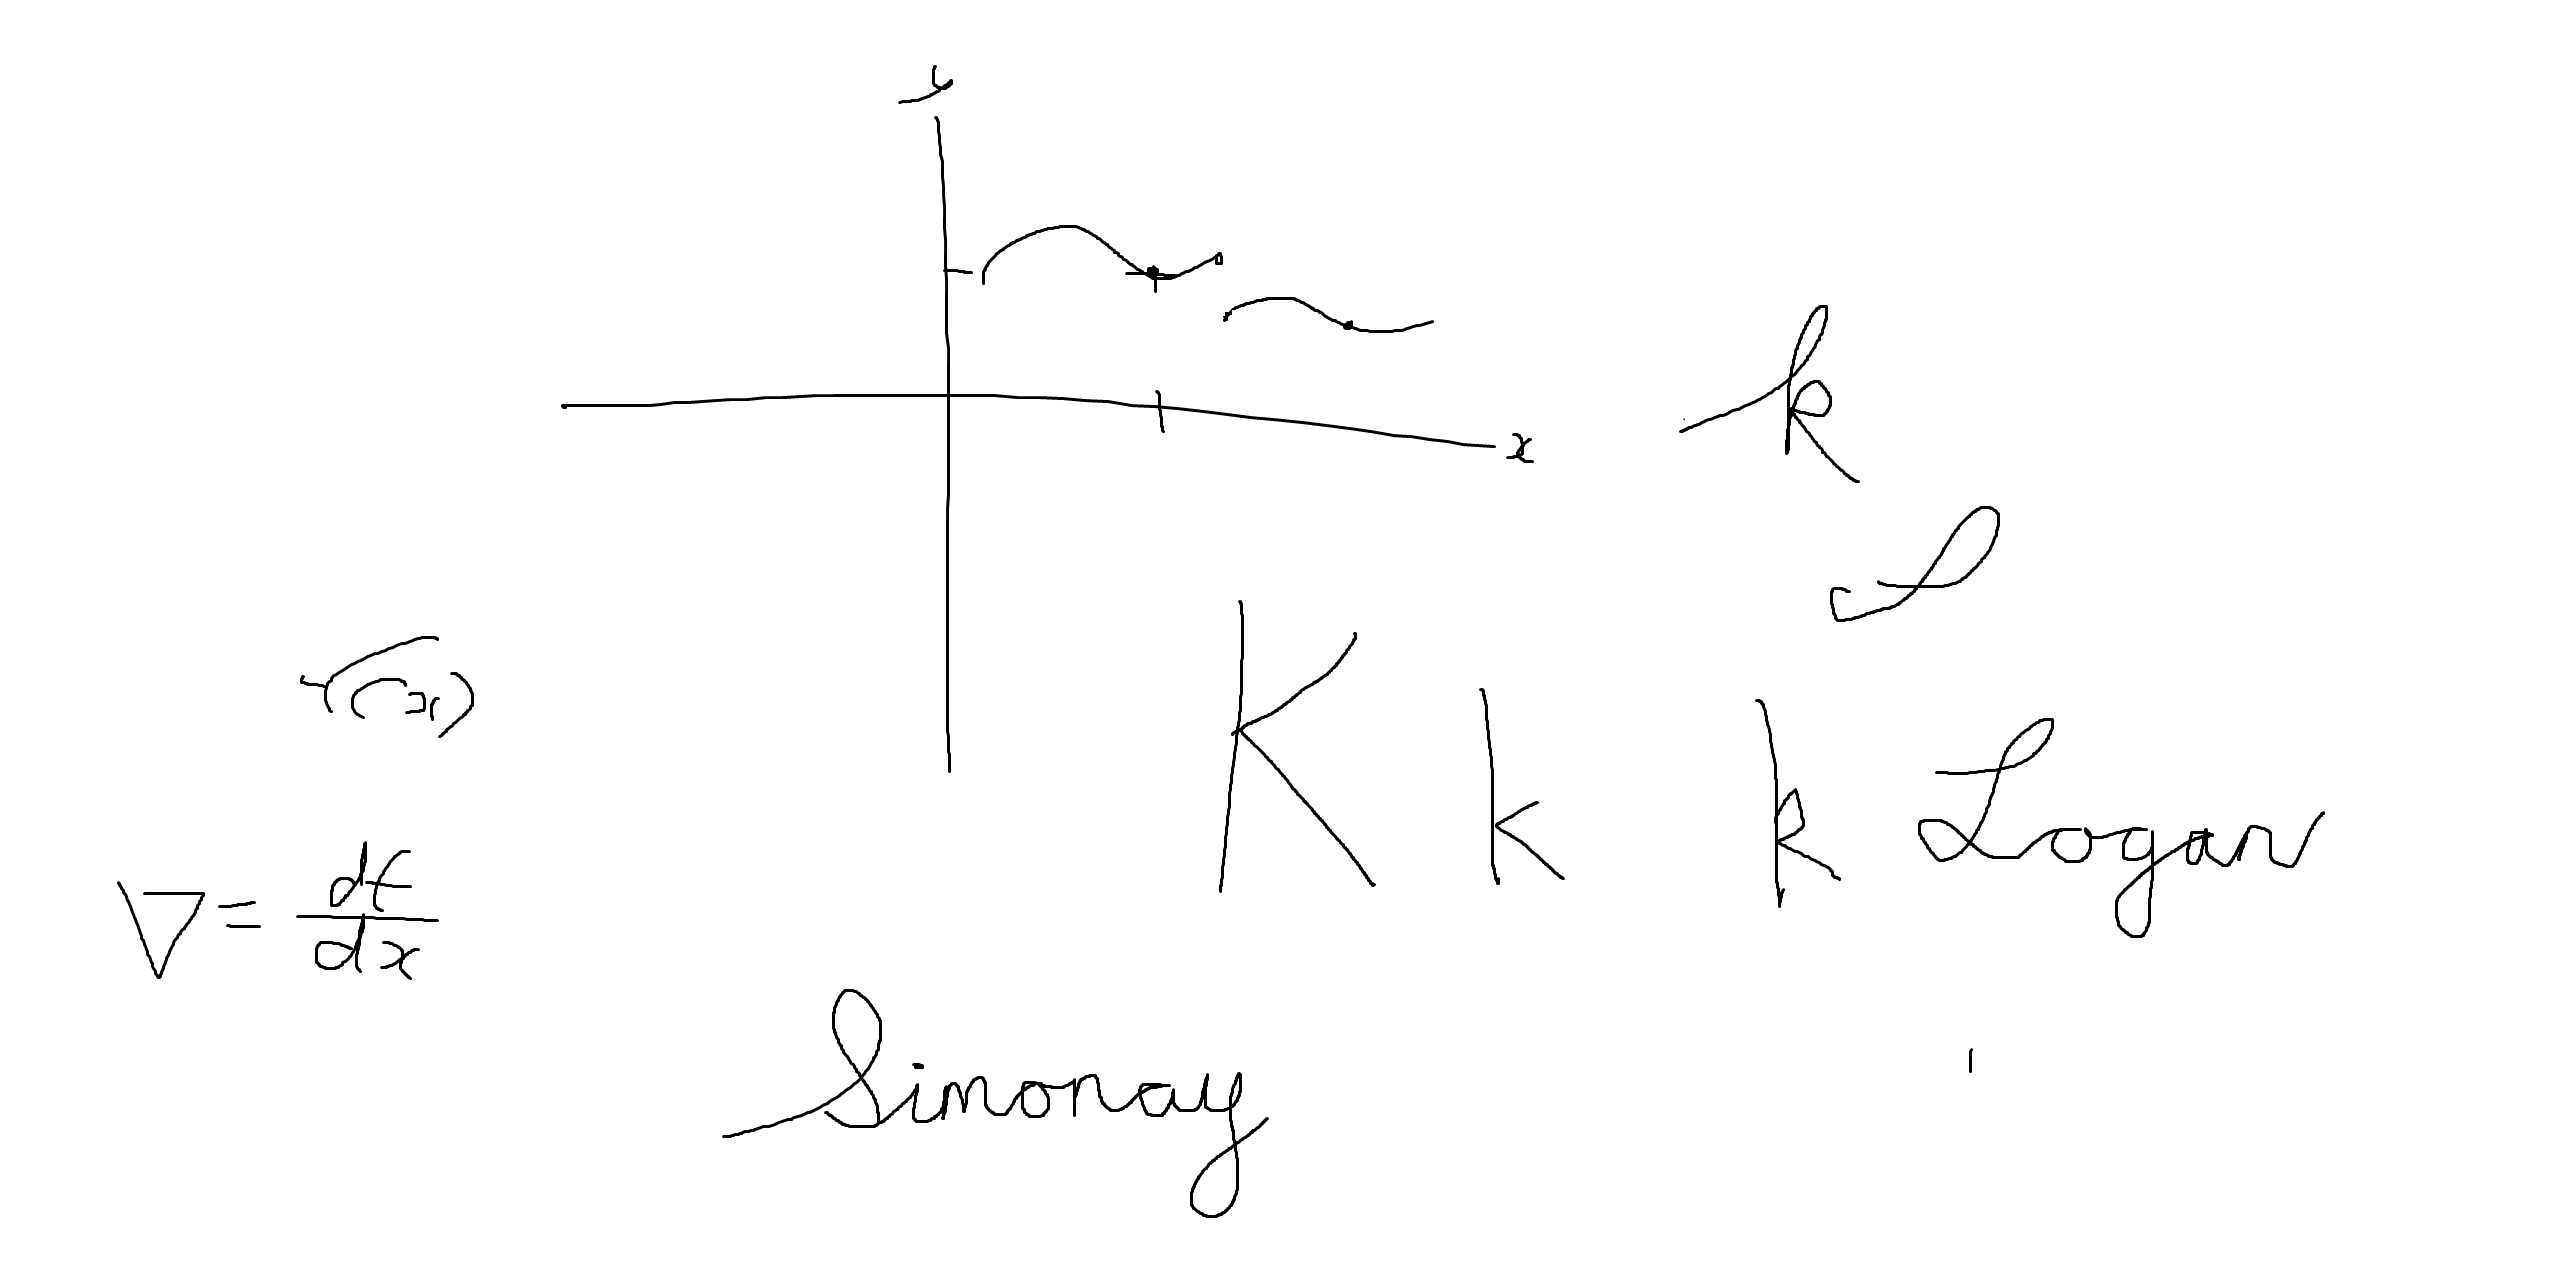 y
x
k
f(x)
K k k Logan
∇ = df/dx
Simonay